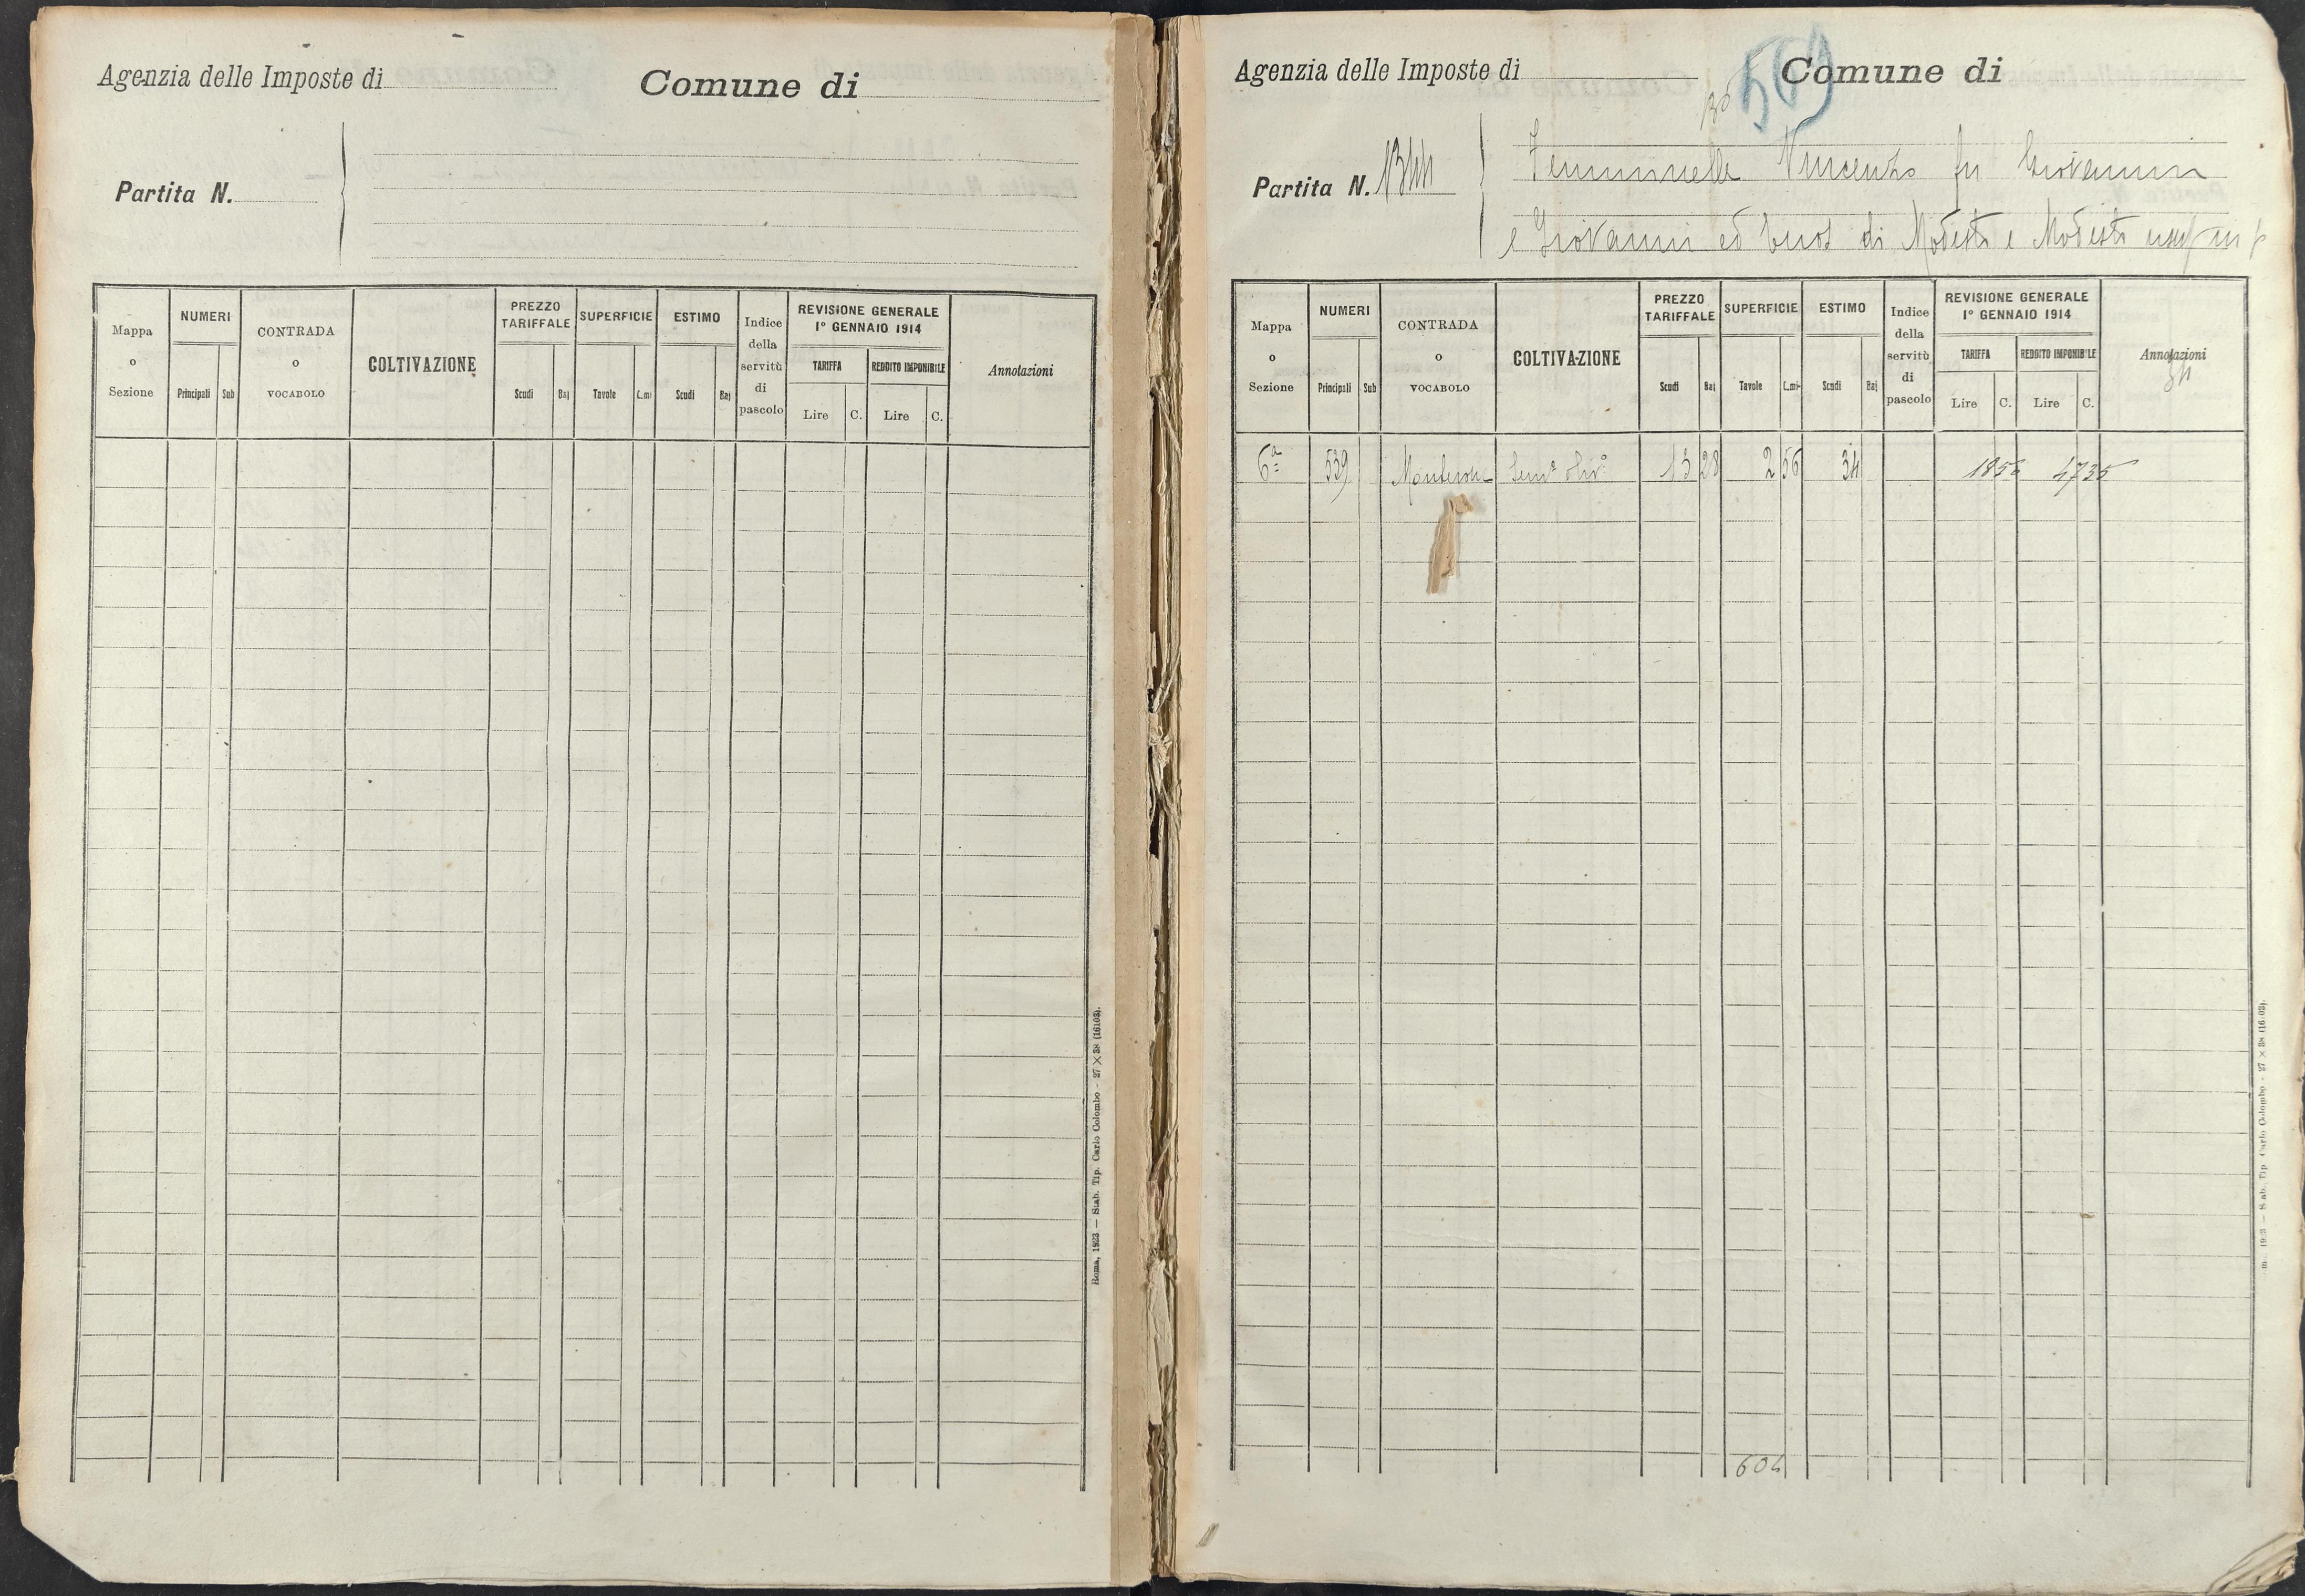 Agenzia delle Imposte di
Comune di
Partita N.
Mappa o Sezione
NUMERI
Principali
Sub
CONTRADA o VOCABOLO
COLTIVAZIONE
PREZZO TARIFFALE
Scudi
Baj
SUPERFICIE
Tavole
C.mi
ESTIMO
Scudi
Baj
Indice della servitù di pascolo
REVISIONE GENERALE
1° GENNAIO 1914
TARIFFA
REDDITO IMPONIBILE
Lire
C.
Lire
C.
Annotazioni
Roma, 1923 — Stab. Tip. Carlo Colombo - 27 × 38 (16103).
Agenzia delle Imposte di
Comune di
Partita N. 1344
Vincenzo fu Giovanni
e Giovanni ed di Modesto e Modesto
Mappa o Sezione
NUMERI
Principali
Sub
CONTRADA o VOCABOLO
COLTIVAZIONE
PREZZO TARIFFALE
Scudi
Baj
SUPERFICIE
Tavole
C.mi
ESTIMO
Scudi
Baj
Indice della servitù di pascolo
REVISIONE GENERALE
1° GENNAIO 1914
TARIFFA
REDDITO IMPONIBILE
Lire
C.
Lire
C.
Annotazioni
34
6ª 539 Sem° oliv° 13 28 2 56 34 1850 4736
604
1923 — Stab. Tip. Carlo Colombo - 27 × 38 (16103).